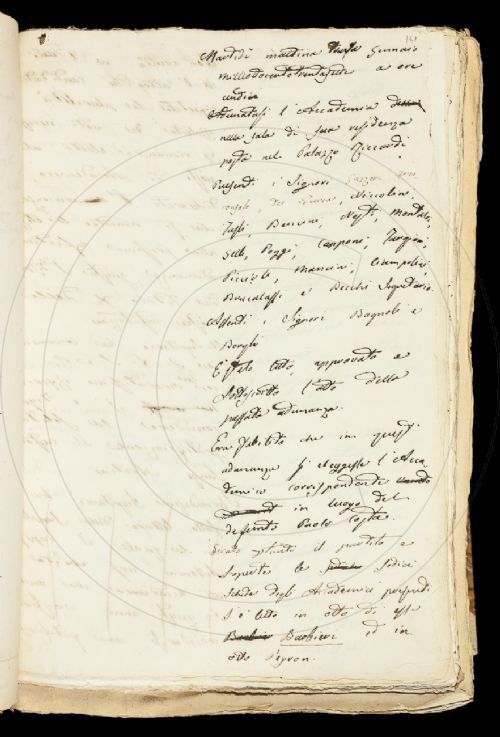 141
Martedì mattina Gennaio
milleottocentotrentasette a ore
undici
Adunatasi l'Accademia
nella sala di sua residenza
posta nel Palazzo Riccardi
Presenti i Signori
Del Niccolini,
Tassi, Bencini, Nesti, Montalvi,
Selli, Poggi, Capponi, Targioni,
Piccioli, Mancini, Ciampolini,
Brucalassi e Becchi Segretario
Assenti i Signori Bagnoli e
Borghi
È stato letto, approvato e
sottoscritto l'atto della
passata adunanza.
Era stabilito che in questa
adunanza si eleggesse l'Acca-
demico corrispondente
in luogo del
defunto Paolo Costa.
il partito e
aperte le sedici
schede degli Accademici presenti
s'è letto in otto di esse
Barbieri ed in
otto Peyron.